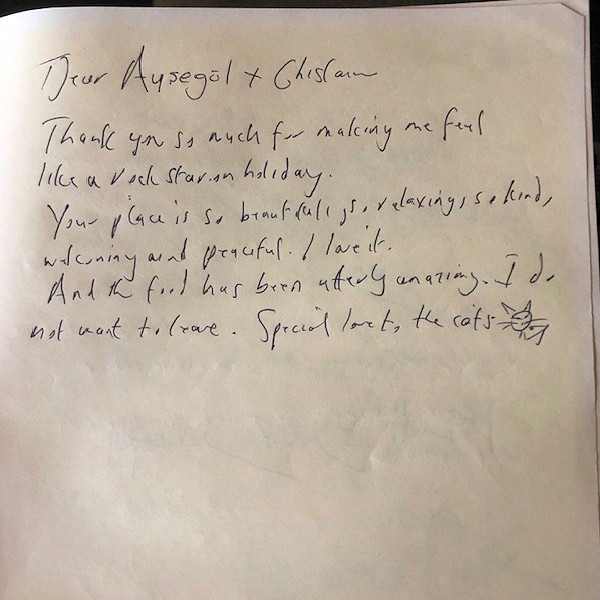 Dear Aysegül + Ghislain
Thank you so much for making me feel
like a rock star on holiday.
Your place is so beautiful, so relaxing, so kind,
welcoming and peaceful. I love it.
And the food has been utterly amazing. I do
not want to leave. Special love to the cats